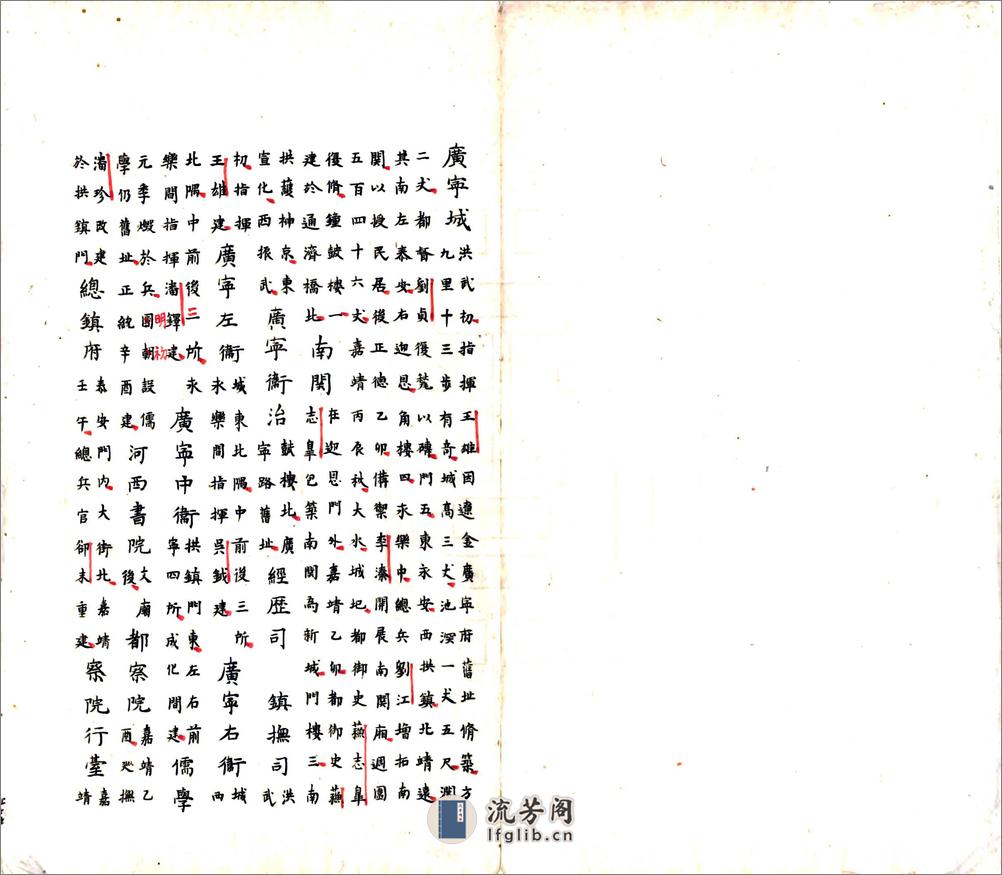 廣寧城洪武初指揮王雄因遼金廣寧府舊址脩築方九里十三步有奇城高三丈池深一丈五尺濶
二丈都督劉真復甃以磚門五東永安西拱鎮北靖遠其南左泰安右迎恩角樓四永樂中總兵劉江增拓南
關以授民居後正德乙卯備禦李溱開展南關廂週圍五百四十六丈嘉靖丙辰秋大水城圮都御史蘇志皐
復脩鐘鼓樓一建於通濟橋北南關在迎恩門外嘉靖乙卯都御史蘇志皐包築南關為新城門樓三南
拱護神京東宣化西振武廣寧衛治鼓樓北廣寧路舊址經歷司鎮撫司洪武
初指揮王雄建廣寧左衛城東北隅中前後三所永樂間指揮吳鉞建廣寧右衛城西
北隅中前後三二所永樂間指揮潘鐸建廣寧中衛拱鎮門東左右前寧四所成化間建儒學
明初
元季燬於兵國朝設儒學仍舊址正統辛酉建河西書院文廟後都察院嘉靖乙酉廵撫
潘珍改建於拱鎮門總鎮府泰安門內大街北嘉靖壬午總兵官郤永重建察院行臺嘉靖
流芳阁
lfglib.cn